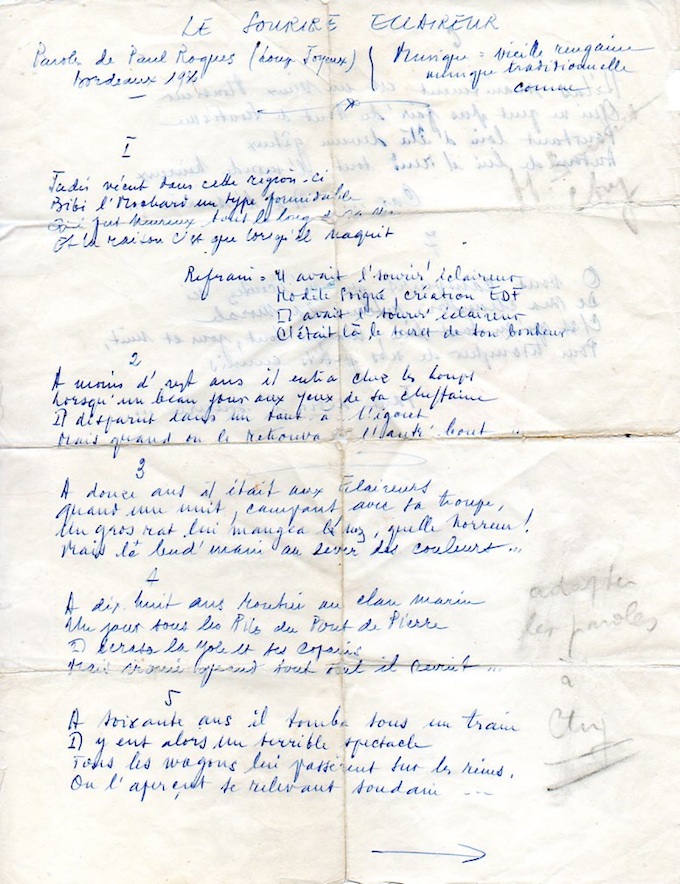 LE SOURIRE ECLAIREUR
Paroles de Paul Roques (Loup Joyeux)
Bordeaux 19
Musique = vieille rengaine
musique traditionnelle
connue
I
Jadis vécut dans cette région-ci
Bibi l'Mochard un type formidable
Qui fut heureux tout le long d sa vi
Et la raison c'est que lorsqu'il naquit
Refrain = Il avait l'sourir' éclaireur
Modèle soigné, création EDF
Il avait l'sourir' éclaireur
C'était là le secret de son bonheur
2
A moins d'sept ans il entra chez les loups
Lorsqu'un beau jour aux yeux de sa cheftaine
Il disparut dans un saut à l'égout
Mais quand on le retrouva à l'autr' bout ...
3
A douze ans il était aux Eclaireurs
Quand une nuit, campant avec sa troupe,
Un gros rat lui mangea le nez, quelle horreur!
Mais le lend'main au lever des couleurs ...
4
A dix-huit ans routier au clan marin
Un jour sous les Piles du Pont de Pierre
Il écrasa la Yole et ses copains
Mais quand tout il revint ...
5
A soixante ans il tomba sous un train
Il y eut alors un terrible spectacle
Tous les wagons lui passèrent sur les reins,
On l'aperçut se relevant soudain ...
adapter
les paroles
à